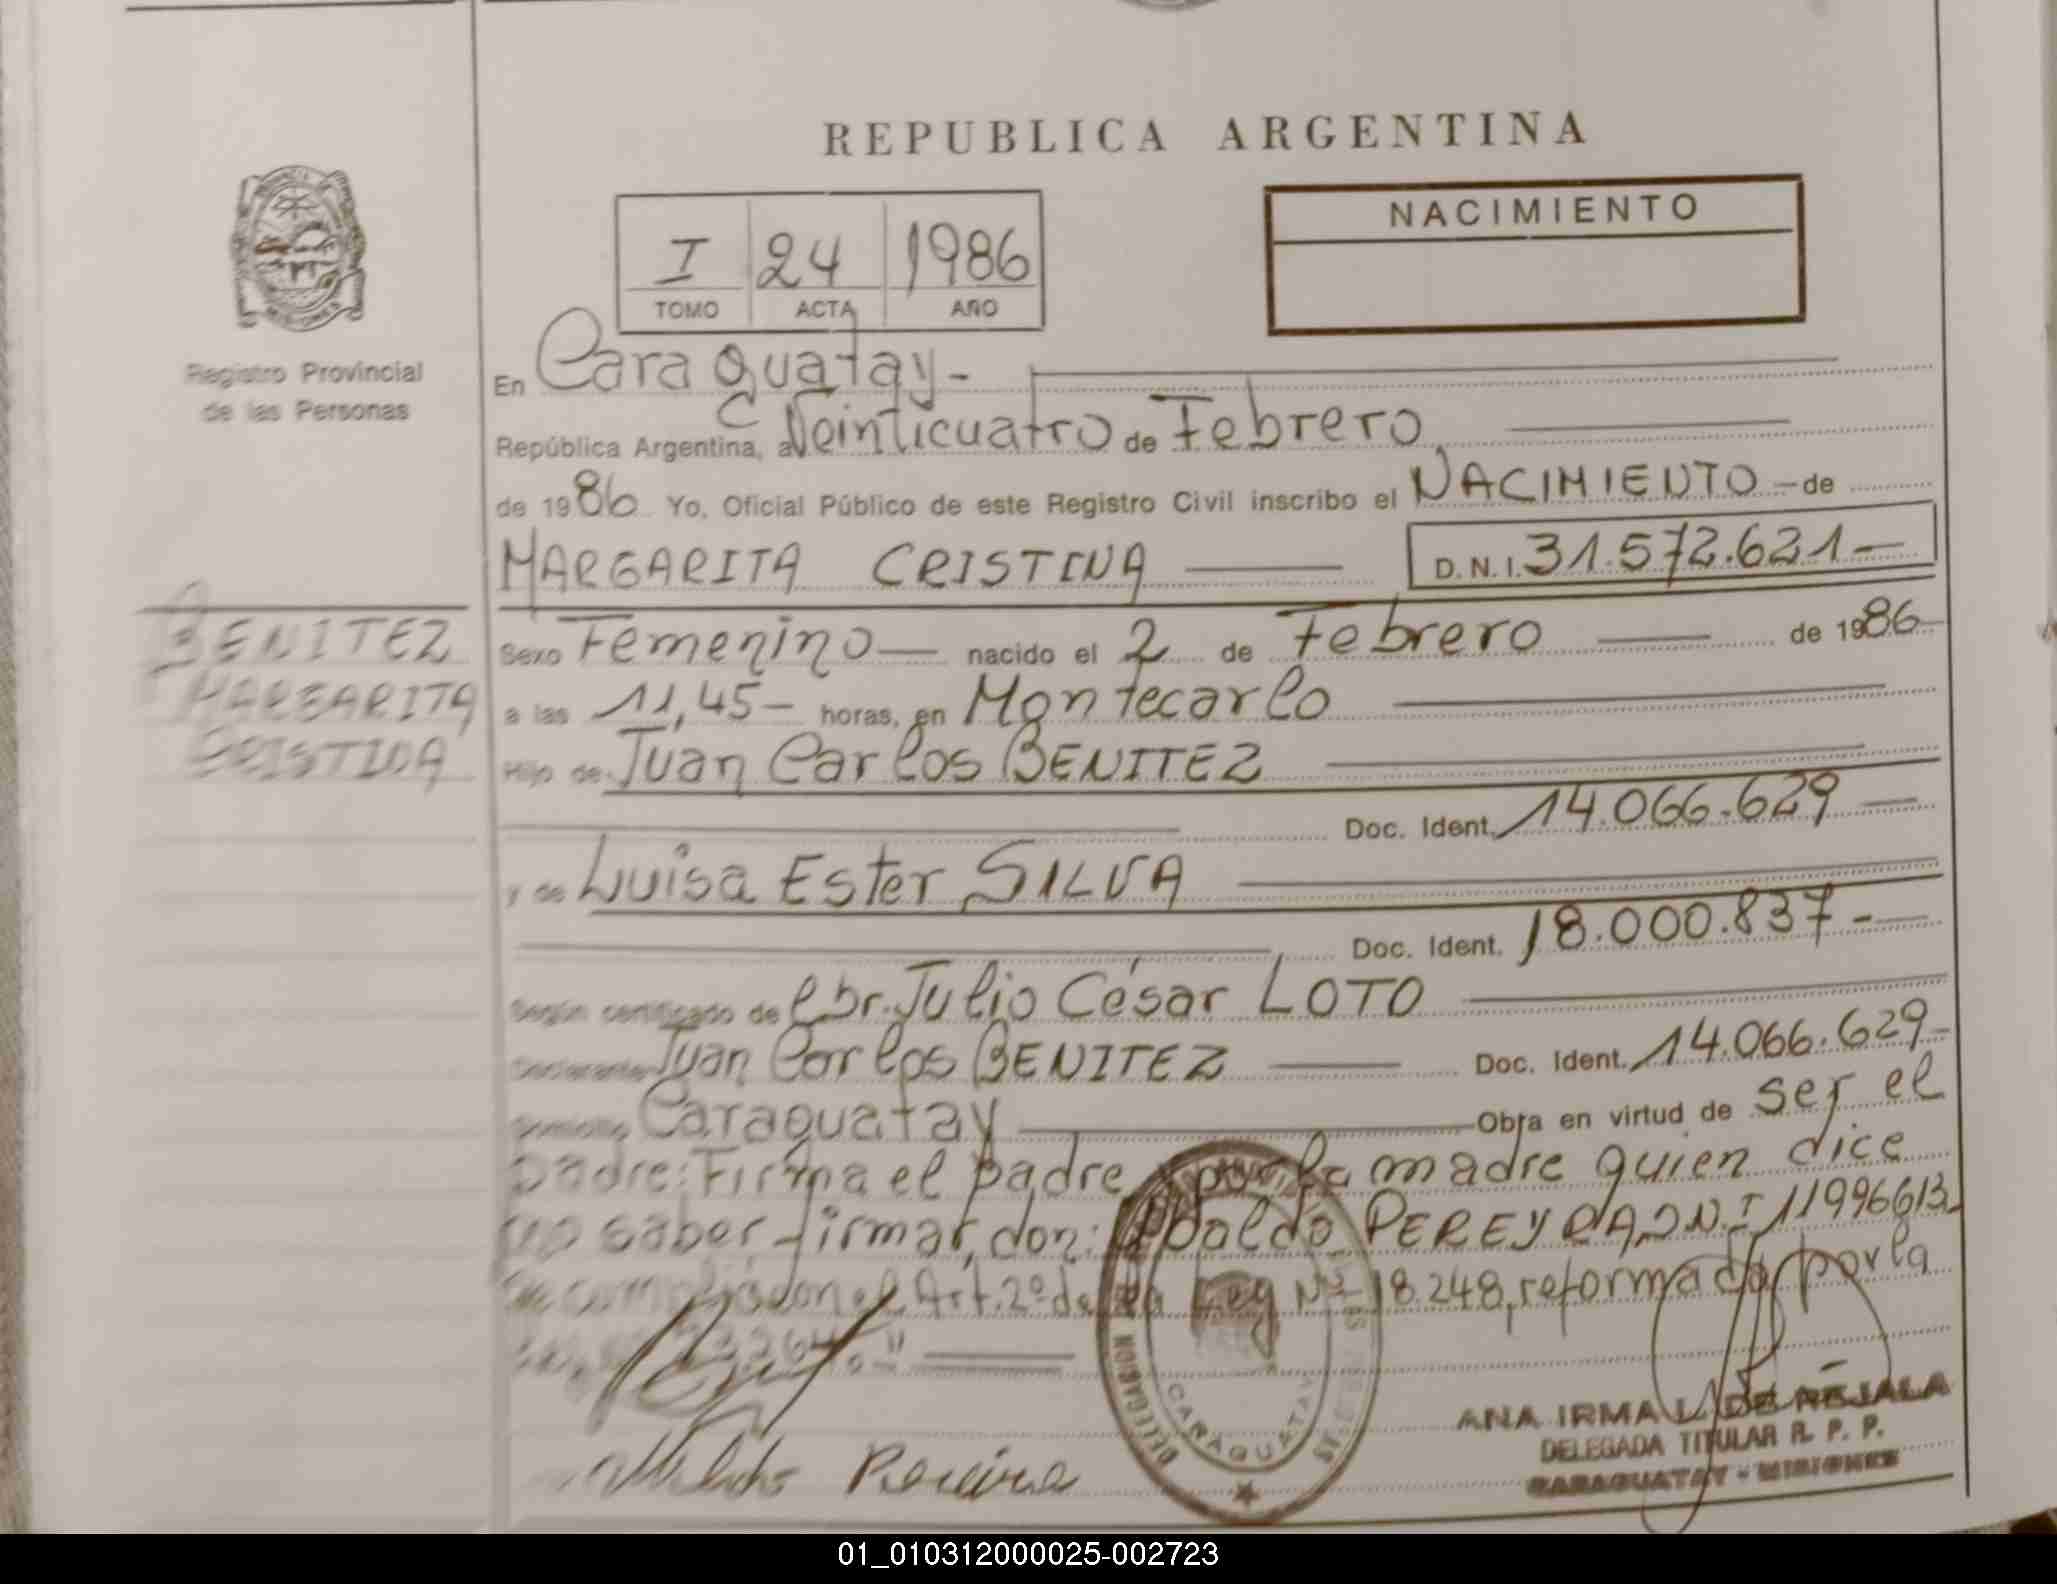 REPUBLICA ARGENTINA
NACIMIENTO
I 24 1986
TOMO ACTA AÑO
Registro Provincial
de las Personas
En Caraguatay-
República Argentina, a Veinticuatro de Febrero
de 1986 Yo, Oficial Público de este Registro Civil inscribo el NACIMIENTO - de
MARGARITA CRISTINA D.N.I. 31.572.621-
BENITEZ
MARGARITA
CRISTINA
Sexo Femenino nacido el 2 de Febrero de 1986
a las 11,45- horas, en Montecarlo
Hijo de Juan Carlos BENITEZ
Doc. Ident. 14.066.629
y de Luisa Ester SILVA
Doc. Ident. 18.000.837-
Según certificado de Dr. Julio César LOTO
Declarante Juan Carlos BENITEZ Doc. Ident. 14.066.629-
Domicilio Caraguatay Obra en virtud de ser el
padre: Firma el padre y por la madre quien dice
no saber firmar, don: PEREYRA, DN.I 11996613
el Art. 2º de la Ley Nº 18.248, reformada por la
DELEGACION
CARAGUATAY
ANA IRMA L. DE
DELEGADA TITULAR R. P. P.
CARAGUATAY - MISIONES
01_010312000025-002723